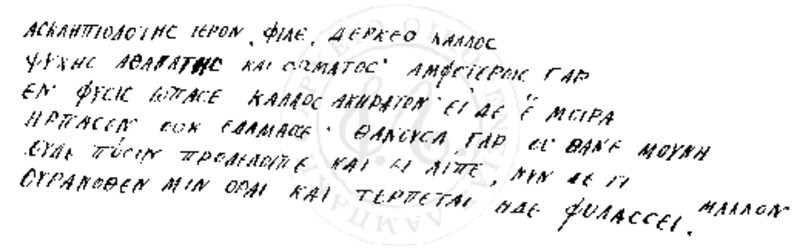 ΑΣΚΛΗΠΙΟΔΟΤΗΣ ΙΕΡΟΝ, ΦΙΛΕ, ΔΕΡΚΕΟ ΚΑΛΛΟΣ
ΨΥΧΗΣ ΑΘΑΝΑΤΗΣ ΚΑΙ ΣΩΜΑΤΟΣ· ΑΜΦΟΤΕΡΟΙΣ ΓΑΡ
ΕΝ ΦΥΣΙΣ ΩΠΑΣΕ ΚΑΛΛΟΣ ΑΚΗΡΑΤΟΝ· ΕΙ ΔΕ Ε ΜΟΙΡΑ
ΗΡΠΑΣΕΝ ΟΥΚ ΕΔΑΜΑΣΕ· ΘΑΝΟΥΣΑ ΓΑΡ ΟΥ ΘΑΝΕ ΜΟΥΝΗ
ΟΥΔΕ ΠΟΣΙΝ ΠΡΟΛΕΛΟΙΠΕ ΚΑΙ ΕΙ ΛΙΠΕ, ΝΥΝ ΔΕ ΕΤΙ ΜΑΛΛΟΝ
ΟΥΡΑΝΟΘΕΝ ΜΙΝ ΟΡΑΙ ΚΑΙ ΤΕΡΠΕΤΑΙ ΗΔΕ ΦΥΛΑΣΣΕΙ.